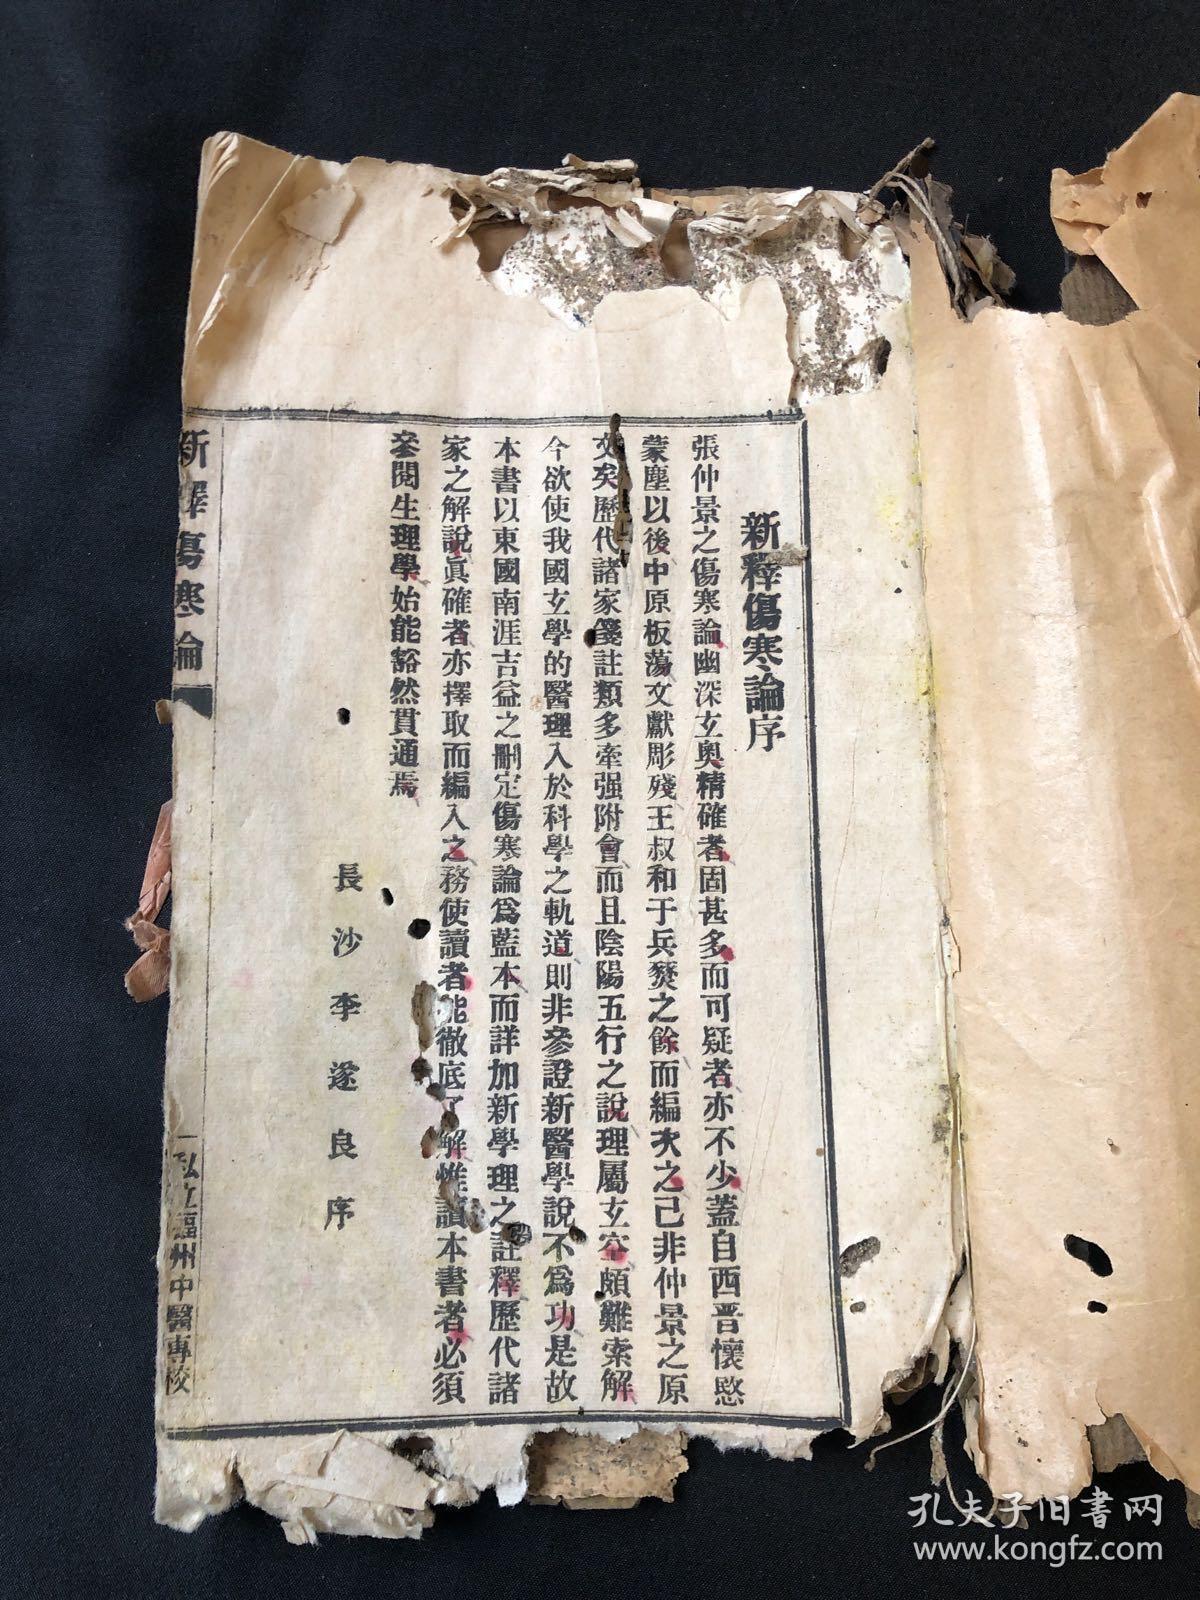 新釋傷寒論序
張仲景之傷寒論幽深玄奧精確者固甚多而可疑者亦不少蓋自西晋懷愍
蒙塵以後中原板蕩文獻彫殘王叔和于兵燹之餘而編次之已非仲景之原
文矣歷代諸家箋註類多牽强附會而且陰陽五行之說理屬玄空頗難索解
今欲使我國玄學的醫理入於科學之軌道則非參證新醫學說不爲功是故
本書以東國南涯吉益之刪定傷寒論爲藍本而詳加新學理之註釋歷代諸
家之解說眞確者亦擇取而編入之務使讀者能徹底了解惟讀本書者必須
參閱生理學始能豁然貫通焉
長沙李遂良序
新釋傷寒論
一 私立福州中醫專校
孔夫子旧书网
www.kongfz.com